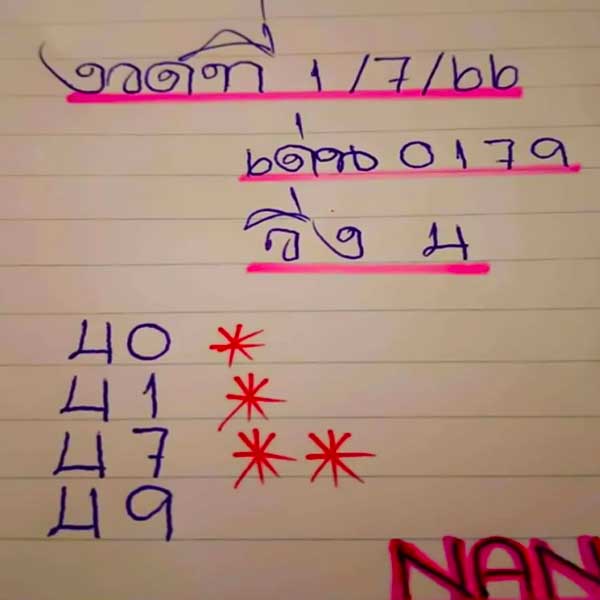 งวดที่ 1/7/66
เด่น 0179
วิ่ง 4
40 *
41 *
47 * *
49
NAN